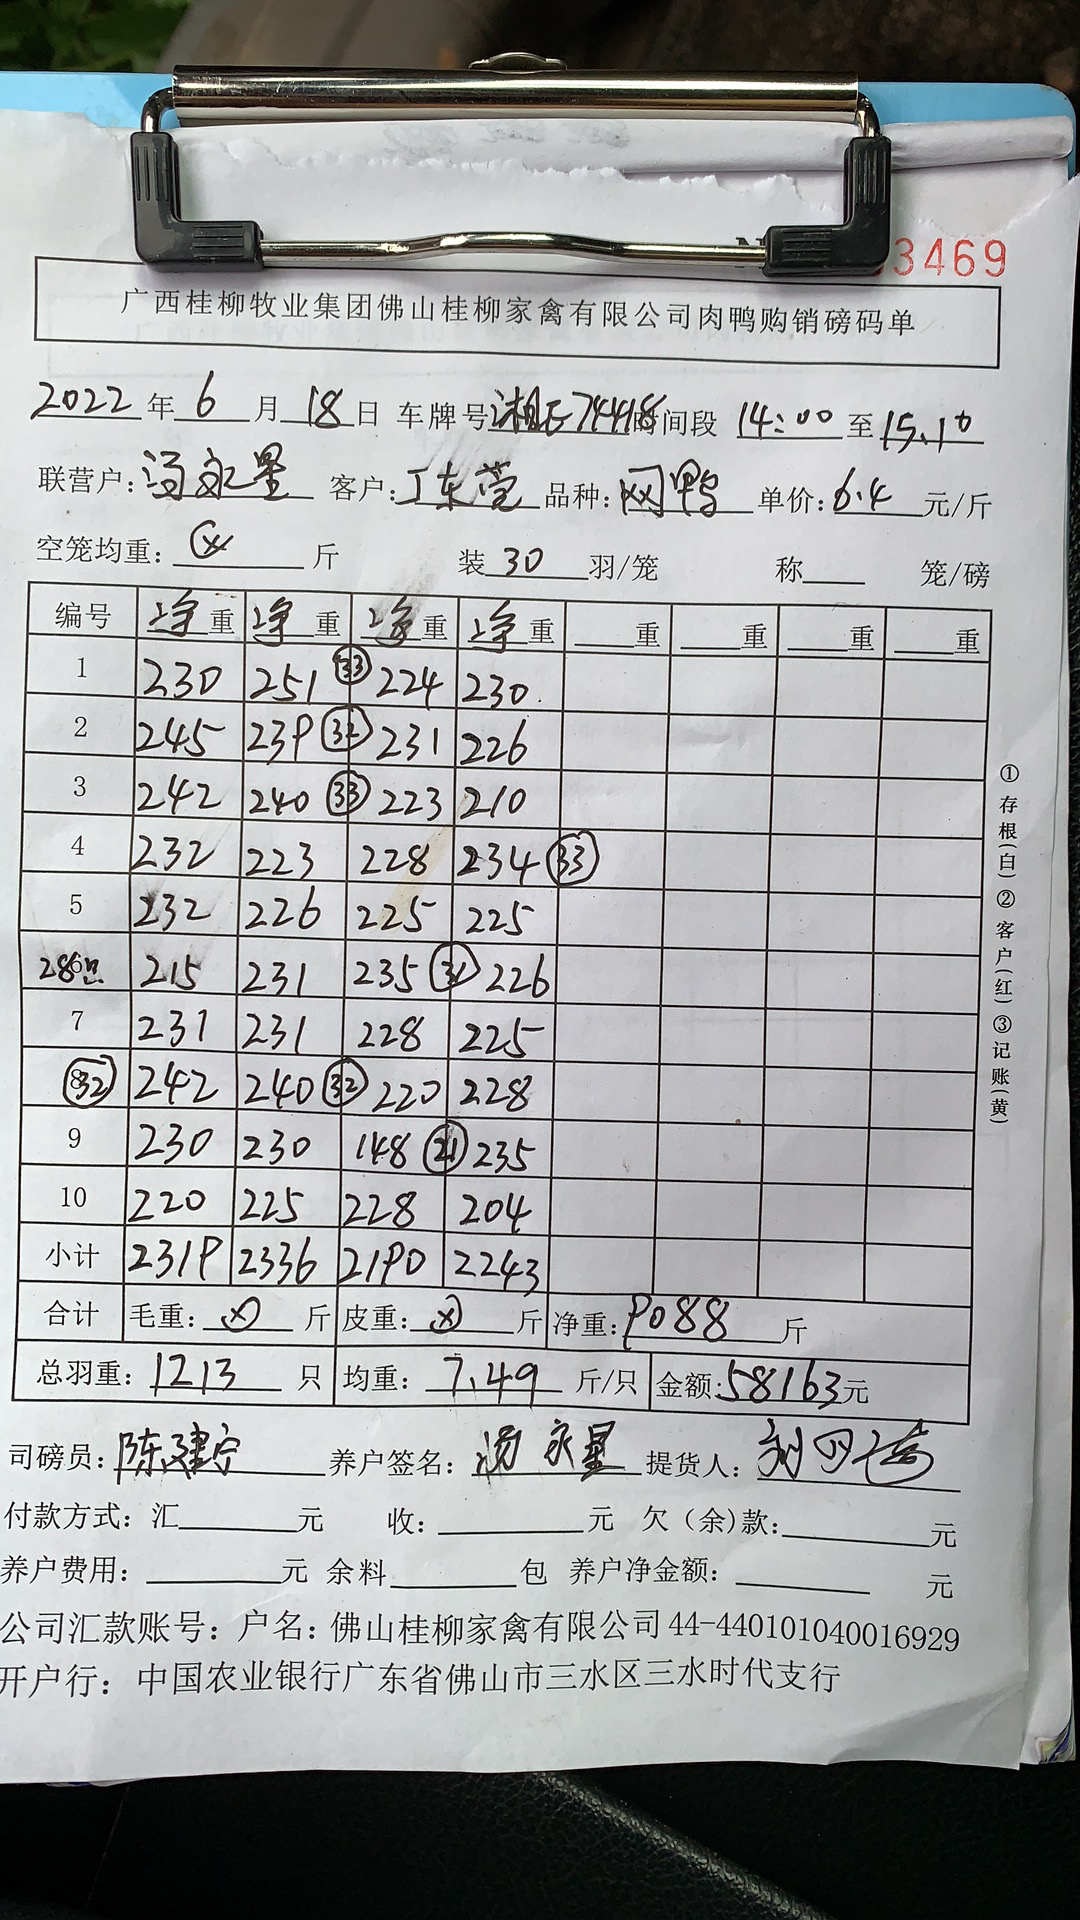 3469
广西桂柳牧业集团佛山桂柳家禽有限公司肉鸭购销磅码单
2022年6月18日 车牌号湘E74418时间段 14:00至15.10
联营户:汤永星 客户:丁东莞 品种:网鸭 单价:6.4元/斤
空笼均重: 斤 装30羽/笼 称 笼/磅
编号 净重 净重 净重 净重 重 重 重 重
1 230 251 33 224 230
2 245 239 32 231 226
3 242 240 33 223 210
4 232 223 228 234 33
5 232 226 225 225
28只 215 231 235 31 226
7 231 231 228 225
32 242 240 32 220 228
9 230 230 148 21 235
10 220 225 228 204
小计 2319 2336 2190 2243
合计 毛重: 斤 皮重: 斤 净重:9088斤
总羽重:1213只 均重:7.49斤/只 金额:58163元
司磅员:陈建宁 养户签名:汤永星 提货人:刘
付款方式:汇 元 收: 元 欠(余)款: 元
养户费用: 元 余料 包 养户净金额: 元
公司汇款账号:户名:佛山桂柳家禽有限公司44-440101040016929
开户行:中国农业银行广东省佛山市三水区三水时代支行
①存根(白)②客户(红)③记账(黄)